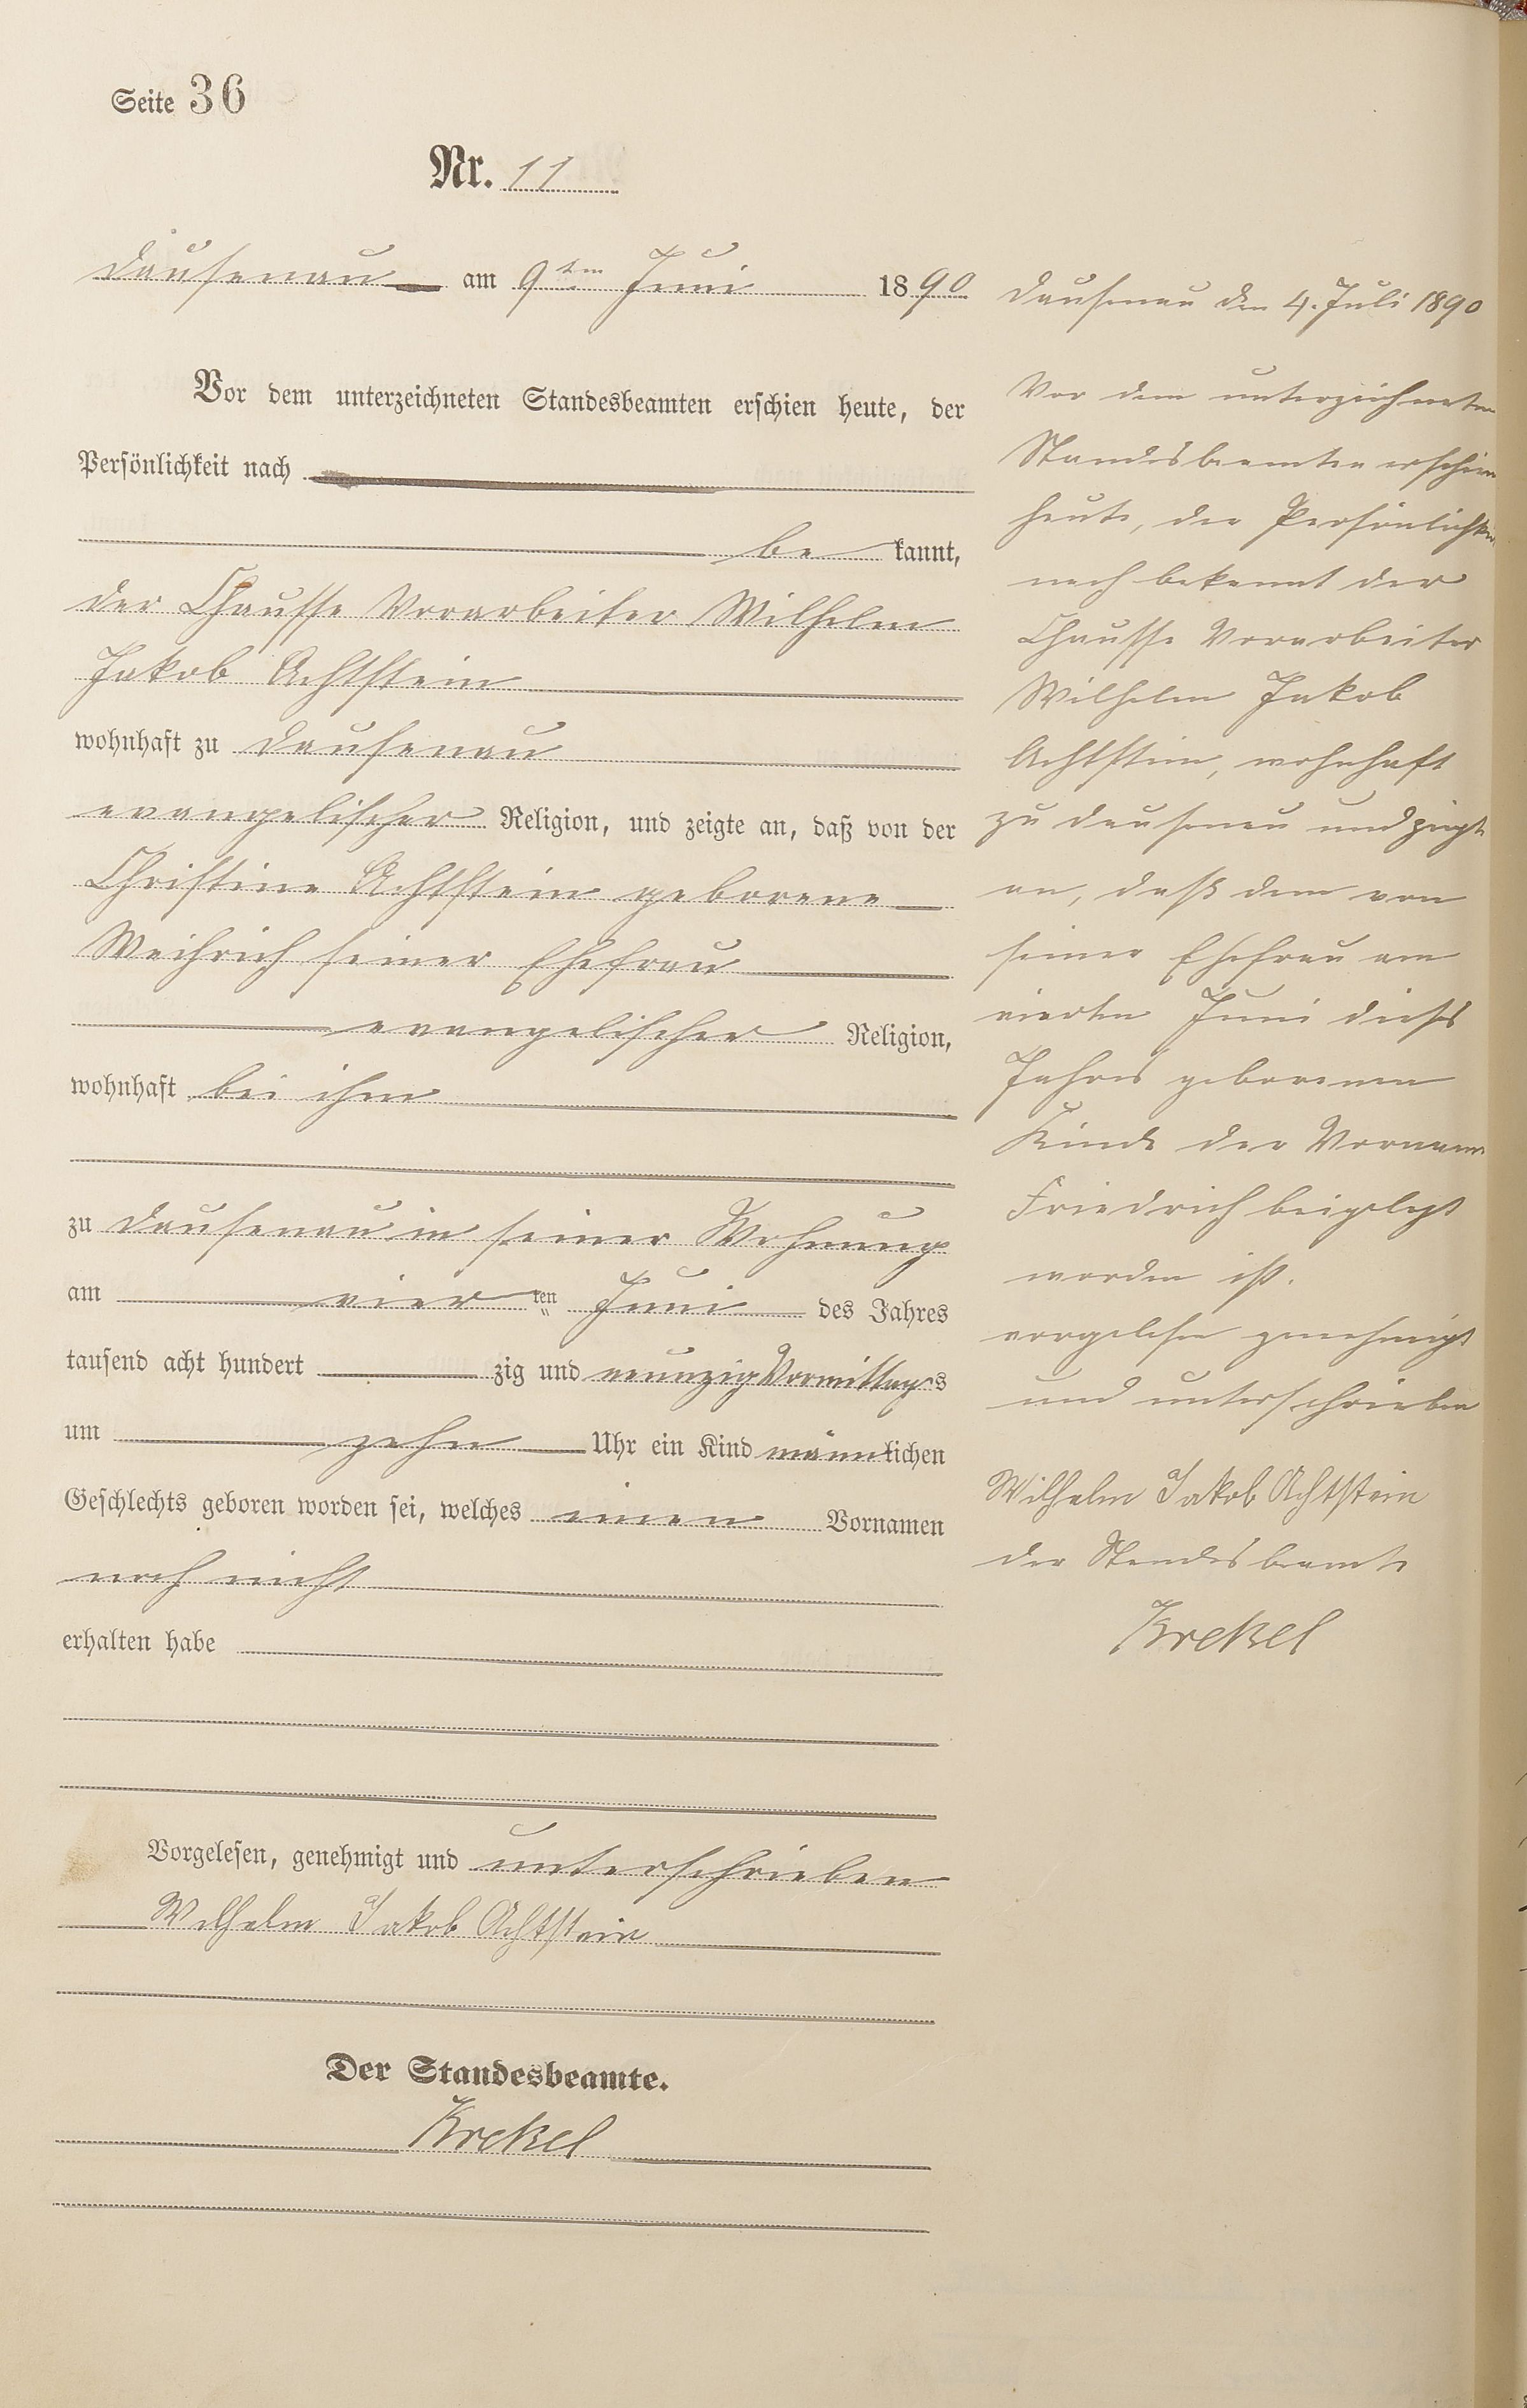 Seite 36
Nr. 11
Dausenau am 9ten Juni 1890
Vor dem unterzeichneten Standesbeamten erschien heute, der
Persönlichkeit nach
be kannt,
der Chausse Vorarbeiter Wilhelm
Jakob Achtstein
wohnhaft zu Dausenau
evangelischer Religion, und zeigte an, daß von der
Christine Achtstein geborene
Weihrich seiner Ehefrau
evangelischer Religion,
wohnhaft bei ihm
zu Dausenau in seiner Wohnung
am vier ten Juni des Jahres
tausend acht hundert zig und neunzig Vormittags
um zehn Uhr ein Kind männlichen
Geschlechts geboren worden sei, welches einen Vornamen
noch nicht
erhalten habe
Vorgelesen, genehmigt und unterschrieben
Wilhelm Jakob Achtstein
Der Standesbeamte.
Krekel
Dausenau den 4. Juli 1890
Vor dem unterzeichneten
Standesbeamten erschien
heute, der Persönlichkeit
nach bekannt der
Chausse Vorarbeiter
Wilhelm Jakob
Achtstein, wohnhaft
zu Dausenau und zeigt
an, daß dem von
seiner Ehefrau am
vierten Juni dieses
Jahres geborenen
Kinde der Vorname
Friedrich beigelegt
worden ist.
vorgelesen genehmigt
und unterschrieben
Wilhelm Jakob Achtstein
der Standesbeamte
Krekel